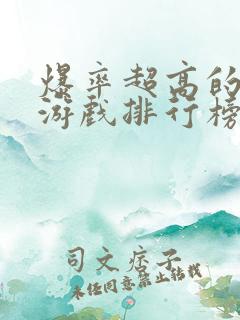 爆率超高的
游戏排行榜
司文痞子
未经同意禁止转载